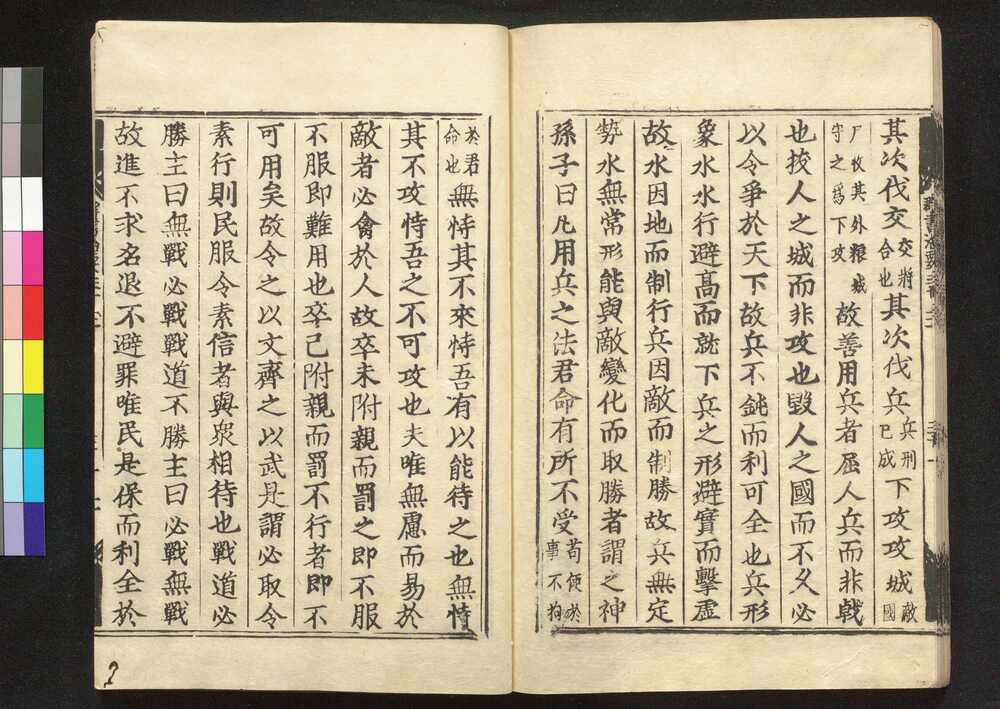 其次伐交交將合也其次伐兵兵刑已成下攻攻城敵國
收其外粮城守之為下攻故善用兵者屈人兵而非戰
也拔人之城而非攻也毀人之國而不久必
以令爭於天下故兵不鈍而利可全也兵形
象水水行避高而就下兵之形避實而擊虛
故水因地而制行兵因敵而制勝故兵無定
勢水無常形能與敵變化而取勝者謂之神
孫子曰凡用兵之法君命有所不受苟便於事不拘
於君命也無恃其不來恃吾有以能待之也無恃
其不攻恃吾之不可攻也夫唯無慮而易於
敵者必禽於人故卒未附親而罰之即不服
不服即難用也卒已附親而罰不行者即不
可用矣故令之以文齊之以武是謂必取令
素行則民服令素信者與衆相待也戰道必
勝主曰無戰必戰戰道不勝主曰必戰無戰
故進不求名退不避罪唯民是保而利全於